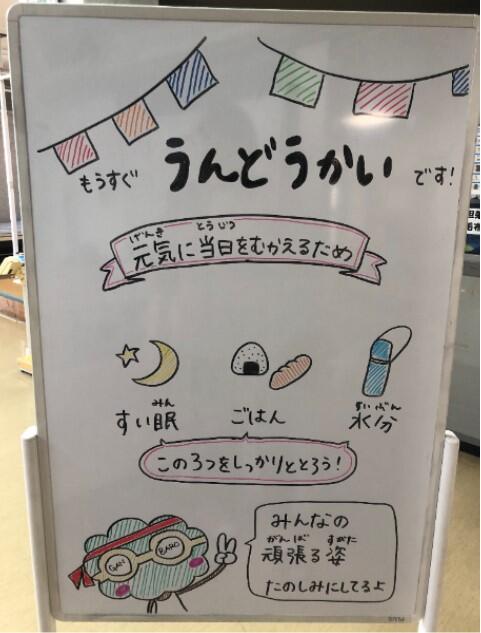 もうすぐ うんどうかい です!
げんき とうじつ
元気に当日をむかえるため
みん
すい眠 ごはん
すいぶん
水分
この3つをしっかりととろう!
GAN BARO
みんなの
がんば すがた
頑張る姿
たのしみにしてるよ